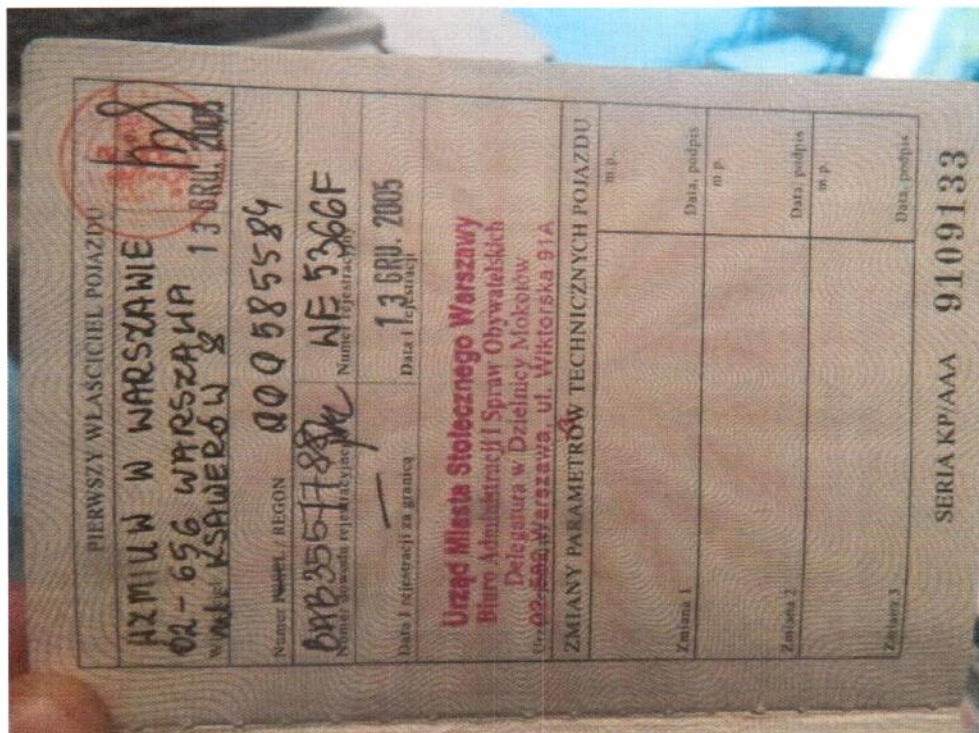 PIERWSZY WŁAŚCICIEL POJAZDU
HZMIUW W WARSZAWIE
02-656 WARSZAWA
KSAWERÓW 8
13 GRU. 2005
Numer PESEL / REGON
000585584
BAB3557788
WE 5366F
Numer dowodu rejestracyjnego
Numer rejestracyjny
13 GRU. 2005
Data I rejestracji za granicą
Data I rejestracji
Urząd Miasta Stołecznego Warszawy
Biuro Administracji i Spraw Obywatelskich
Delegatura w Dzielnicy Mokotów
Warszawa, ul. Wiktorska 91A
ZMIANY PARAMETRÓW TECHNICZNYCH POJAZDU
Zmiana 1
m.p.
Data, podpis
Zmiana 2
m.p.
Data, podpis
Zmiana 3
m.p.
Data, podpis
SERIA KP/AAA 9109133